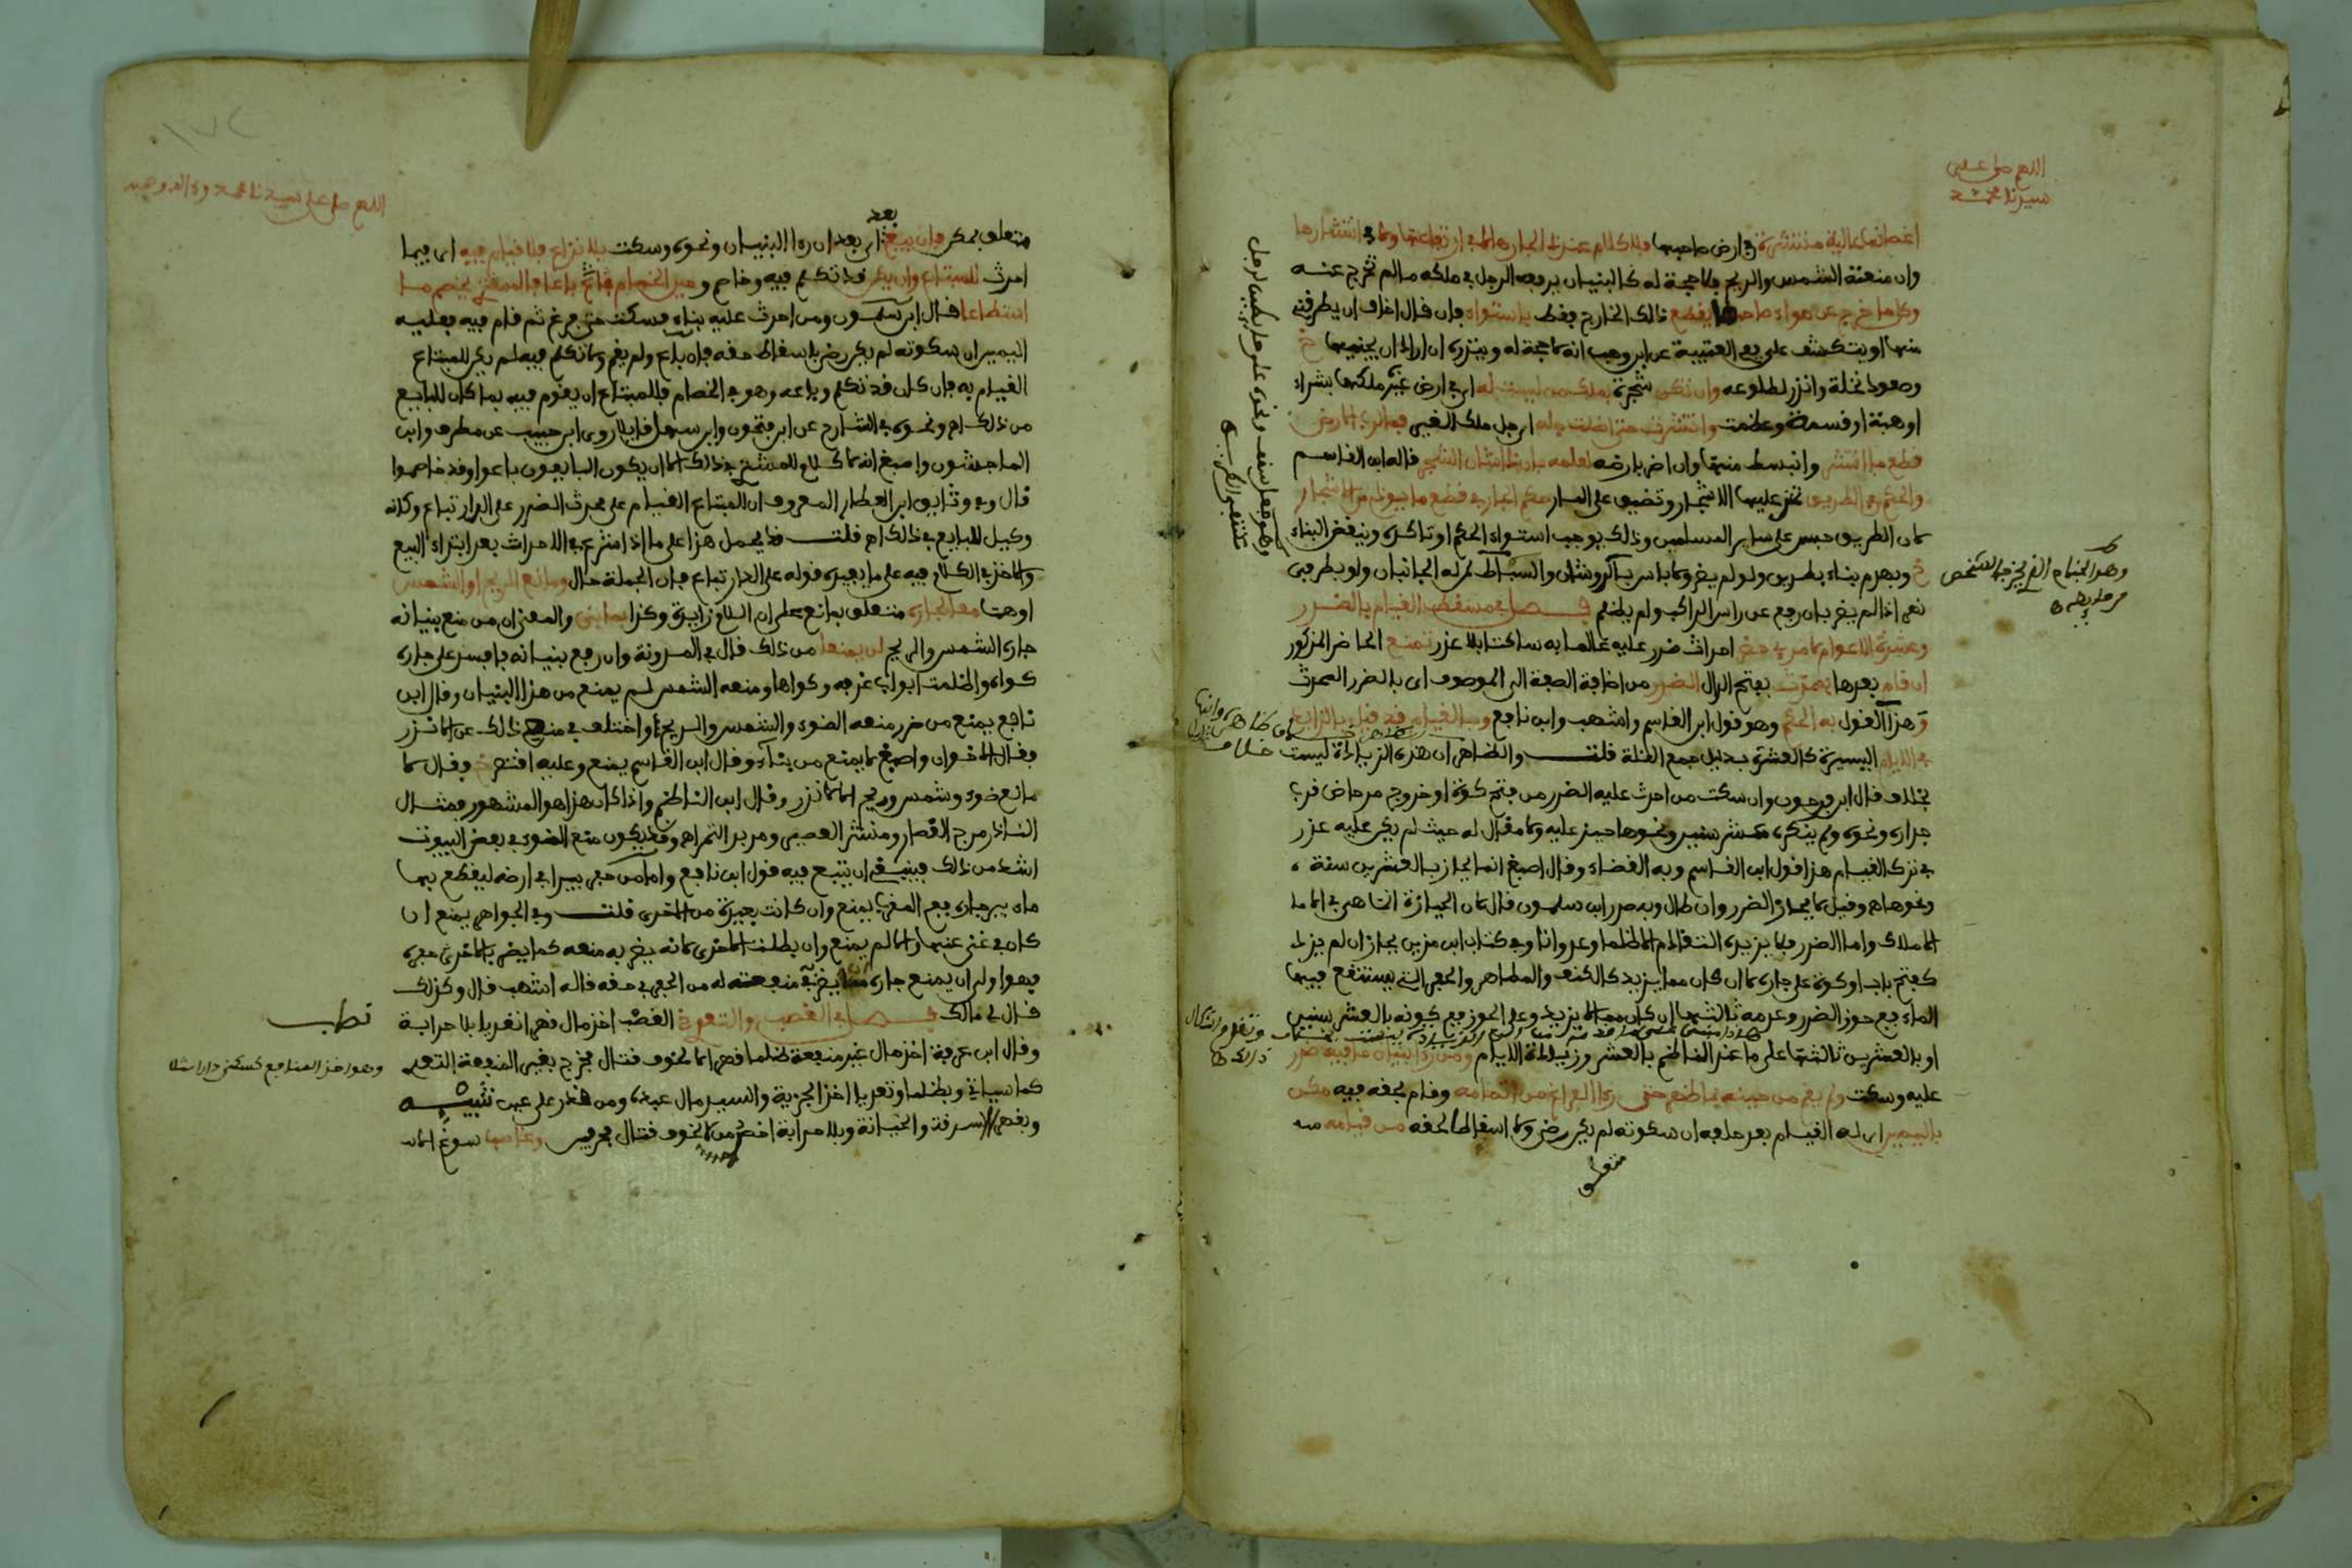 اللهم صل على
سيدنا محمد
اغصانها عالية منتشرة في ارض صاحبها فلا كلام عند ذا الجار لا في ارتفاعها ولا في انتشارها
وان منعته الشمس والريح فلا حجة له كالبنيان يرفعه الرجل في ملكه ما لم تخرج عنه
وكل ما خرج عن هواء صاحبها يقطع ذلك الخارج فقط باستواء فان قال اخاف ان يطرقني
منها او يتكشف علي ففي العتيبة عن ابن وهب انه لا حجة له وينذره ان اراد ان يجنيها
وصعود نخلة وانذر لطلوعه وان تكن شجرة بملك من ليست له اي في ارض غيره ملكها بشراء
او هبة او قسمة وعظمت وانتشرت حتى اظلت جله اي جل ملك الغير فما لرب الارض
قطع ما انتشر وانبسط منها وان اضر بارضه لعلمه بان ذا شان الشجر قاله ابن القاسم
والحكم في الطريق تخرج عليها الاشجار وتضيق على المار حكم الجار في قطع ما يوذي من الاشجار
لان الطريق حبس على ساير المسلمين وذلك يوجب استواء الحكم او تاكده وينقض البناء
ويهدم بناء بطريق ولو لم يضر ولا باس بالروشان والساباط لمن له الجانبان ولو بطريق
نعم اذا لم يضر بان رفع عن راس الراكب ولم يظلم فصل في مسقط القيام بالضرر
وعشرة الاعوام لامرئ حضر احداث ضرر عليه عالما به ساكتا بلا عذر تمنع الحاضر المذكور
ان قام بعدها بمحدث بفتح الدال الضرر من اضافة الصفة الى الموصوف اي بالضرر المحدث
وهذا القول به الحكم وهو قول ابن القاسم واشهب وابن نافع وبالقيام قد قيل بالزايد
في الايام اليسيرة كالعشرة بدليل جمع القلة قلت والظاهر ان هذه الزيادة ليست خلاف
بخلاف قال ابن فرحون وان سكت من احدث عليه الضرر من فتح كوة او خروج مرحاض قرب
جداره ونحوه ولم ينكره عشر سنين ونحوها حيز عليه ولا مقال له حيث لم يكن عليه عذر
في ترك القيام هذا قول ابن القاسم وبه القضاء وقال اصبغ انما يحاز بالعشرين سنة
ونحوها وقيل لا يحاز الضرر وان طال وبه صدر ابن سلمون قال لان الحيازة انما هي في
الاملاك واما الضرر فلا يزيده التقادم الا ظلما وعدوانا وفي كتاب ابن مزين يحاز ان لم يزد
كفتح باب او كوة على جاره لا ان كان مما يزيد كالكنف والمطامر والحفر التي يستنقع فيها
الماء ففي حوز الضرر وعدمه ثالثها ان كان مما لا يزيد وعلى الحوز ففي كونه بالعشر سنين
او بالعشرين ثالثها على ما عند الناظم بالعشر وزيادة الايام ومن راى بنيان ما فيه ضرر
عليه وسكت ولم يقم من حينه بما ظهر حتى راى الفراغ من اتمامه وقام بحقه فيه مكن
باليمين اي له القيام بعد حلفه ان سكوته لم يكن رضى ولا اسقاطا لحقه من قيامه
متعلق
وهو الجناح الذي يخرجه الشخص
من حايطه
وهو جعل سقف ونحوه على حايطين لرجل
اللهم صل على سيدنا محمد وءاله وصحبه
١٧٤
متعلق بمكن فان يبع بعد اي بعد ان راى البنيان ونحوه وسكت بلا نزاع فلا قيام فيه اي فيما
احدث للمبتاع وان يكن قد تكلم فيه وخاصم وحين الخصام باع فالمشتري يخصم ما
استطاعا قال ابن سلمون ومن احدث عليه بناء فسكت حتى فرغ ثم قام فيه فعليه
اليمين ان سكوته لم يكن رضى باسقاط حقه فان باع ولم يقم ولا تكلم فيه لم يكن للمبتاع
القيام به فان كان قد تكلم وباعه وهو في الخصام فللمبتاع ان يقوم فيه بما كان للبايع
من ذلك اه ونحوه في الشارح عن ابن فتحون وابن سهل قايلا روى ابن حبيب عن مطرف وابن
الماجشون واصبغ انه لا كلام للمشتري في ذلك الا ان يكون البايعون باعوا وقد خاصموا
قال وفي وثايق ابن العطار المعروف ان للمبتاع القيام على محدث الضرر على الدار تباع وكانه
وكيل للبايع في ذلك اه قلت قد يحمل هذا على ما اذا شرع في الاحداث بعد ابتداء البيع
والاخذ في الكلام فيه على ما يفيده قوله على الدار تباع فان الجملة حال ومانع الريح او الشمس
او هما معا لجاره متعلق بمانع على ان اللام زايدة وكذا بما بنى والمعنى ان من منع بنيانه
جاره الشمس والريح لن يمنعا من ذلك قال في المدونة وان رفع بنيانه فافسد على جاره
كواه واظلمت ابواب غرفه وكواها ومنعه الشمس لم يمنع من هذا البنيان وقال ابن
نافع يمنع من ضرر منعه الضوء والشمس والريح واختلف في منع ذلك عن الاندر
فقال الاخوان واصبغ لا يمنع من بناه وقال ابن القاسم يمنع وعليه اقتصر خ فقال لا
مانع ضوء وشمس وريح الا لاندر وقال ابن الناظم واذا كان هذا هو المشهور فمثال
الاندر مرج القصار ومنشر العصير ومربد التمر اه وقد يكون منع الضوء في بعض البيوت
اشد من ذلك فينبغي ان يتبع فيه قول ابن نافع واما من حفر بيرا في ارضه ليقطع بها
ماء بير جاره ففي المغرب يمنع وان كانت بعيدة من الاخرى قلت وفي الجواهر يمنع ان
كان في غنى عنها والا لم يمنع وان بطلت الاخرى لانه يضر به منعه كما يضر بالاخرى حفره
فهو اولى ان يمنع جاره ان يضر به في منفعته له من الحفر في حقه قاله اشهب قال وكذلك
قال لي مالك فصل في الغصب والتعدي الغصب اخذ مال قهرا تعديا بلا حرابة
وقال ابن عرفة اخذ مال غير منفعة ظلما قهرا لا لخوف قتال فخرج بغير المنفعة التعدي
كما سياتي وبظلما وتعديا اخذ الجزية والسيد مال عبده ومن قدر على عين شيئه
وبقهرا السرقة والخيانة وبلا حرابة اخذه من لا لخوف قتال وغاصب سوغ
وهو اخذ المنافع كسكنى دار مثلا